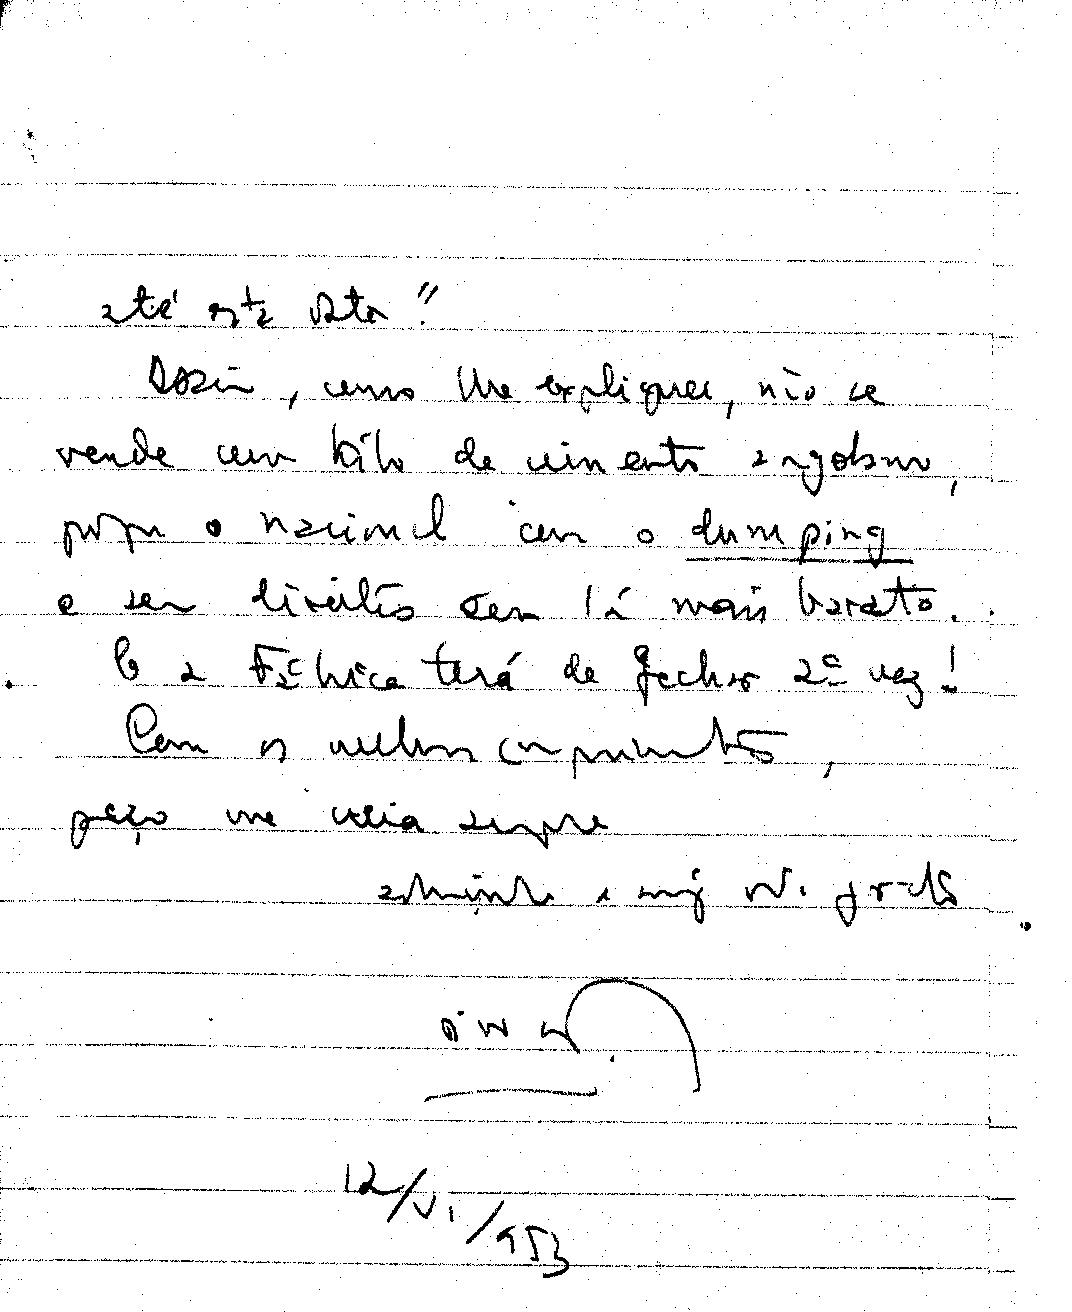 até esta data"
Assim, como lhe expliquei, não se
vende um kilo de cimento angolano,
porque o nacional com o dumping
e sem direitos sem lá mais barato.
E a Fábrica terá de fechar 2ª vez!
Com os melhores cumprimentos,
peço me creia sempre
e mtº grato
12/VI/953